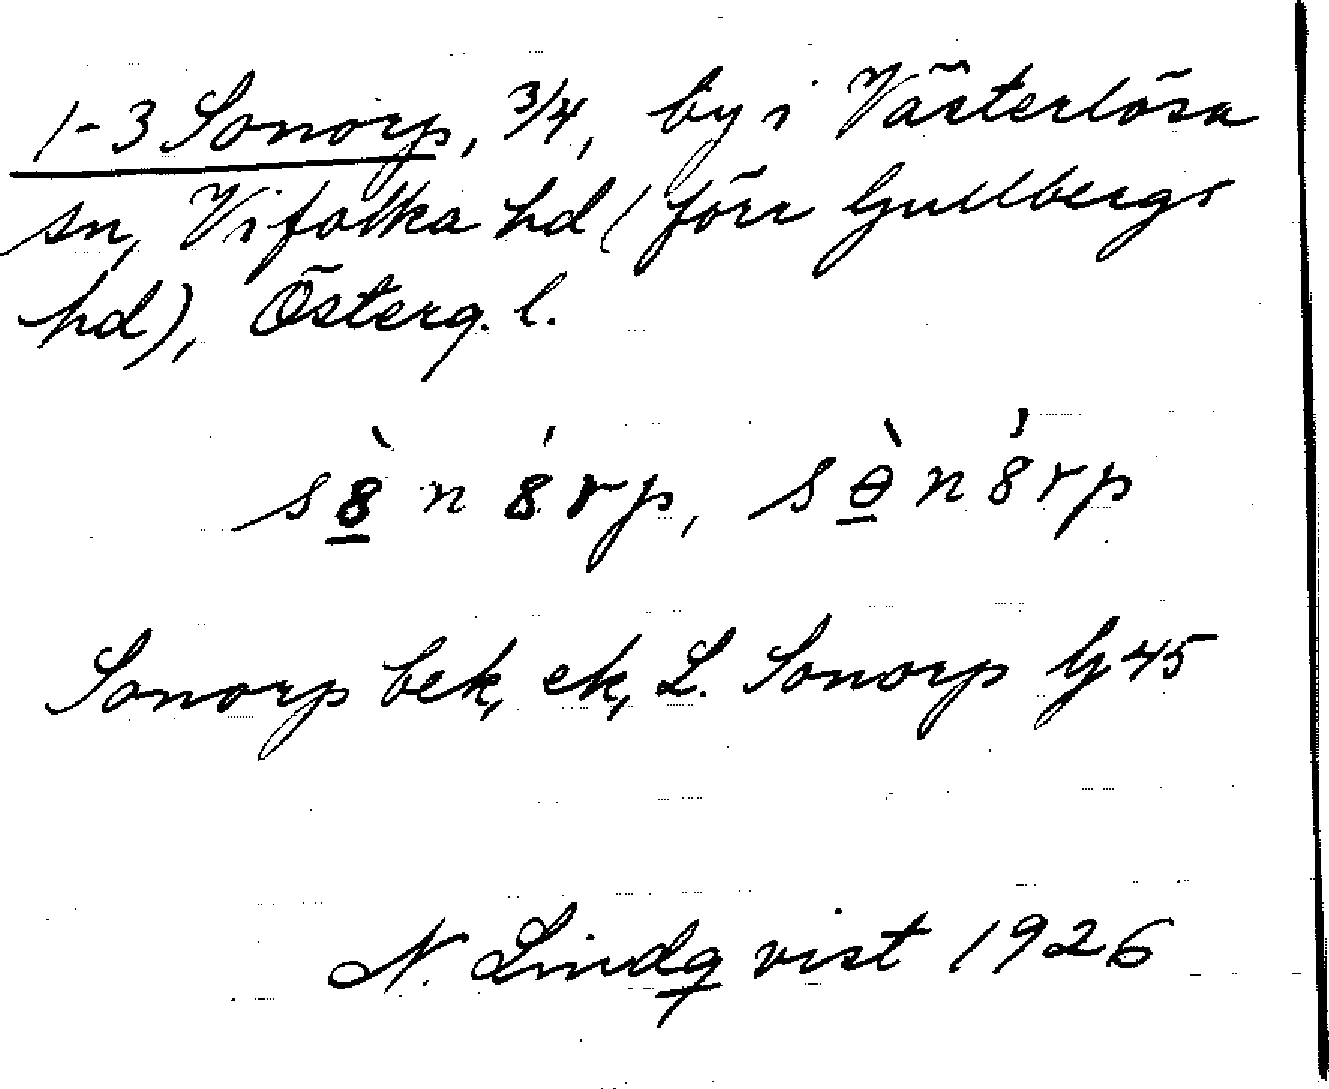 1-3 Sonorp, 3/4, by i Västerlösa
sn, Vifolka hd (förr Gullbergs
hd), Österg. l.
s8̲̀n8́rp, sɵ̲̀n8́rp
Sonorp bek, ek, L. Sonorp Gj 45
N. Lindqvist 1926